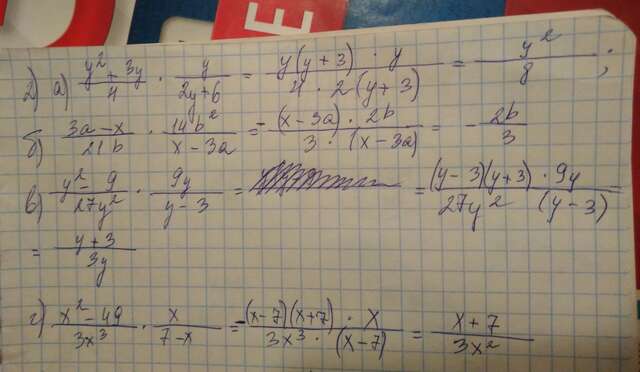 2) а) (y² + 3y)/4 · y/(2y+6) = (y(y+3) · y)/(4 · 2(y+3)) = y²/8 ;
б) (3a-x)/(21b) · (14b²)/(x-3a) = (-(x-3a) · 2b)/(3 · (x-3a)) = - 2b/3
в) (y² - 9)/(27y²) · 9y/(y-3) = = ((y-3)(y+3) · 9y)/(27y² (y-3)) =
= (y+3)/(3y)
г) (x² - 49)/(3x³) · x/(7-x) = (-(x-7)(x+7) · x)/(3x³ · (x-7)) = (x+7)/(3x²)